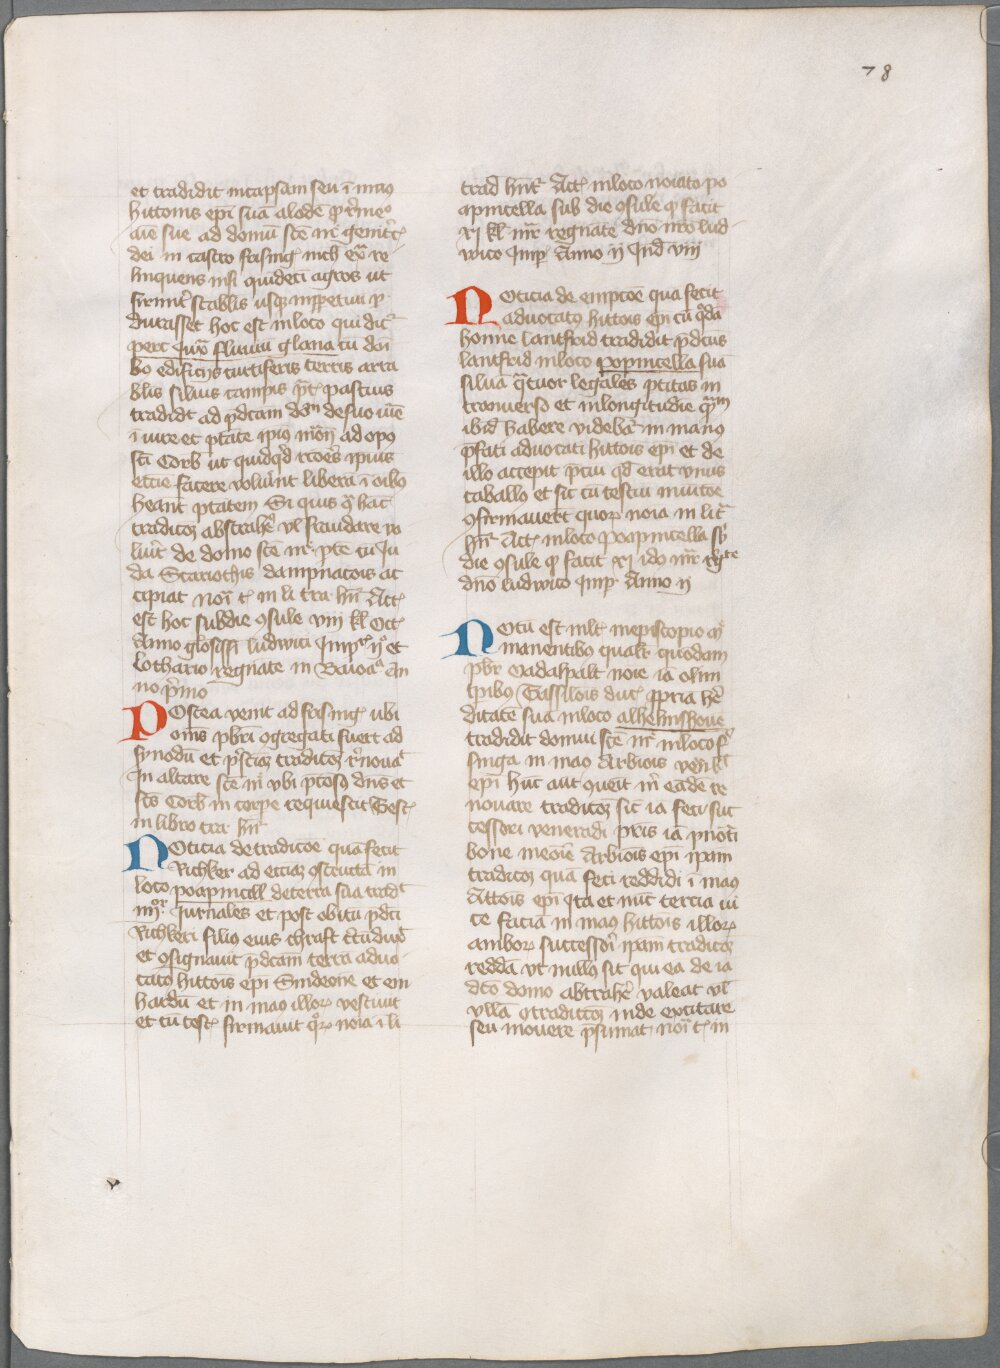 78
et tradidit in capsam seu ī man9
hittonis epī suā alodē p rēme9
aīe sue ad domū scē mr̄ genitc̄
dei in castro frising nich exª re
linquens nisi quindecī agros ut
firmit stabilis usq in ppetuū p
durasset hoc est in loco qui dic
perc iuxª fluuiū glana cū dōi
bo edificijs curtiferis terris ara
blis siluis campis prat pascuis
tradidt ad pdcam dom de suo iuē
ī iure et ptate ipi9 mōn ad op9
scī Corb ut quidqd rcōes ipius
eccīe facere voluint liberā ī oib9
heant ptatem Si quis qº hāc
tradicōz abstrahe vl fraudare vo
luit de domo scē mr̄ pte cū Ju
da Scariothis dampnacōis ac
cipiat noī t in li tra hnt Act
est hoc sub die 9sule viij kl Oct
Anno glosissi ludwici Imp ijº et
lothario regnate in Bauoaª An
no pmo
Postea venit ad frising ubi
oms pbri 9gregati fuert ad
synodū et pscāz tradicōz rnouat
In altare scē m vbi pcos9 dns et
scs Corb in corpe requiescit Gest
in libro tra hnt
Noticia de tradicōe qua fecit
Richker ad eccīaz 9structa in
loco poapincell de terra sua tradt
iiijor Jurnales et post obitu pdci
Richkeri filius eius chraft
et 9signauit pdcam terrā aduo
cato hittonis epi Sindeone et em
hardu et in man9 illor vestiuit
et cū test firmauit qor noīa ī li
trad hnt Act in loco noiato po
apincella sub die 9sule qº facit
xj kl mr regnate dno nrō lud
wico Imp Anno ij Ind viij
Noticia de empcōe qua fecit
aduocat9 hittois epi cū qda
homine lantfrid tradidit pdcus
lantfrid in loco popincella sua
siluā qtuor legales pticas in
tronuerso et in longitudie qm
ibid habere videbat in man9
pfati aduocati hittois epi et de
illo accepit pciū qd erat vnus
caballo et sic cū testiu
9firmauert quor noīa in lit
hnt Act in loco poapincella sb
die 9sule qº facit xj id9 mr rgte
dno ludwico Imp Anno ij
Notū est mlt in episcopio
manentib9 qualit quodam
pbr Madalpalt noīe iā olim
tpib9 Tassilois duc ppria he
ditate sua in loco alhelmshoue
tradidit domui scē mr in loco fr
singa in man9 Arbiois ven
epi hūc aut in eade re
nouare tradicōz sic iā feci suc
cessori veneradi pris iā pnoti
bone meorie Arbiois epi ipam
tradicoz qua feci reddidi ī man9
Attois epi Ita et nūc tercia vi
ce facia in man9 hittois illor
ambor successori ipam tradicōz
reddā vt null9 sit qui ea de ia
dco domo abtrahe valeat vl
vllā 9tradicōz inde excitare
seu mouere psumat noī t in